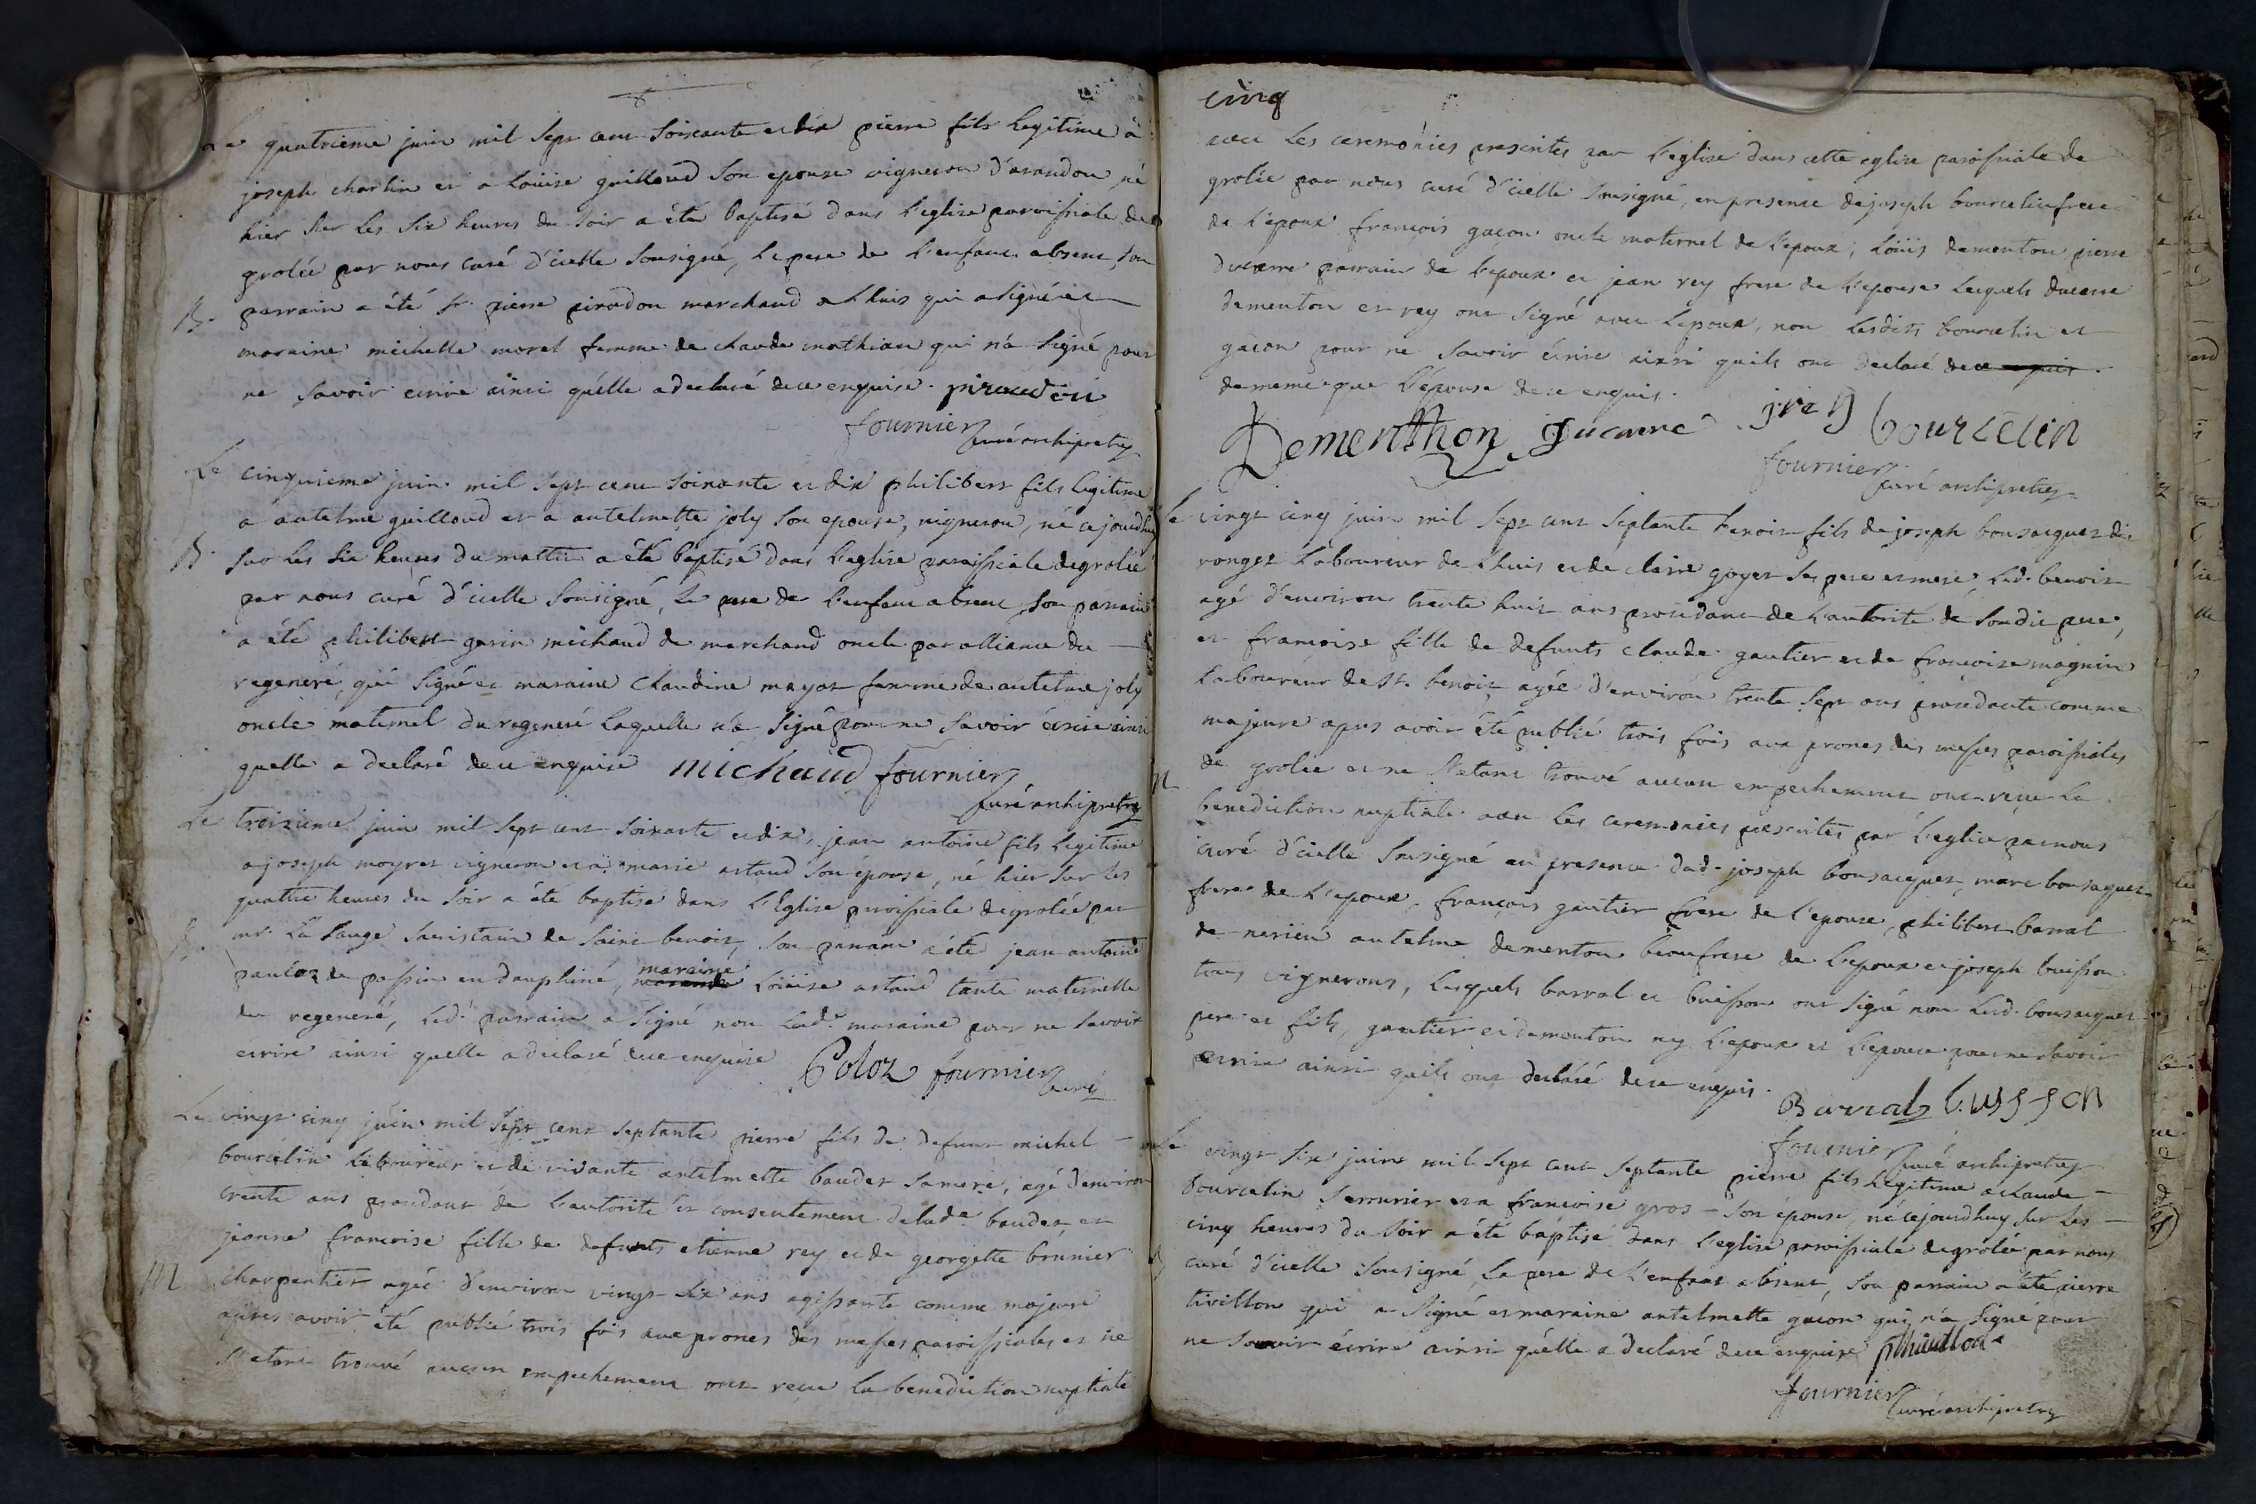 Le quatrieme juin mil sept cent soixante et dix pierre fils legitime a
joseph charlin et a Loüise guilloud son epouse vigneron d'arandon né
hier sur les six heures du soir a été baptisé dans l'eglise paroissiale de
grolée par nous curé d'icelle sousigné, le pere de l'enfant absent, son
B. parrain a été sr. pierre pirodon marchand a Lhuis qui a signé et
maraine michelle morel femme de claude mathian qui n'a signé pour
ne savoir ecrire ainsi qu'elle a declaré de ce enquise. piraudon
fournier
curé archipretre
Le cinquieme juin mil sept cent soixante et dix philibert fils legitime
a antelme guilloud et a antelmette joly son epouse, vigneron, né ce jourd'huy
B. sur les six heures du mattin a été baptisé dans l'eglise paroissiale de grolée
par nous curé d'icelle sousigné, le pere de l'enfant absent, son parrain
a été philibert garin michaud de marchand oncle par alliance du
regeneré, qui signé et maraine claudine mayot femme de antelme joly
oncle maternel du regeneré laquelle n'a signé pour ne savoir écrire ainsi
quelle a declaré de ce enquise michaud fournier
curé archipretre
Le treizieme juin mil sept cent soixante et dix, jean antoine fils legitime
a joseph moyret vigneron et a marie artaud son épouse, né hier sur les
quattre heures du soir a été baptisé dans l'Eglise paroissiale de grolée par
B. mr. La sauge sacristain de saint benoit, son parrain a été jean antoine
pauloz de passin en dauphiné, maraine Loüise artaud tante maternelle
du regeneré, led. parrain a signé non lade. maraine pour ne savoir
ecrire ainsi quelle a declaré de ce enquise Poloz fournier
curé
Le vingt cinq juin mil sept cent septante pierre fils de defunt michel
bourcelin laboureur et de vivante antelmette baudet sa mere, agé denviron
trente ans procedant de l'autorité et consentement de lade. baudet et
jeanne francoise fille de defunts etienne rey et de georgette brunier
M charpentier agée d'environ vingt six ans agissante comme majeure
apres avoir été publié trois fois aux prones des messes paroissiales et ne
s'etant trouvé aucun empechement ont reçue la benediction nuptiale
cinq
avec les ceremonies prescrites par l'eglise dans cette eglise paroissiale de
grolée par nous curé d'icelle sousigné, en presence de joseph bourcelin frere
de l'epoux françois gaçon oncle maternel de l'epoux, Loüis dementon pierre
ducarre parrain de l'epoux et jean rey frere de l'epouse lesquels ducarre
dementon et rey ont signé avec l'epoux, non lesdits bourcelin et
gaçon pour ne savoir écrire ainsi quils ont declaré de ce enquis
de meme que l'épouse de ce enquis.
Dementhon Ducarre j rey bourcelin
fournier
curé archipretre
Le vingt cinq juin mil sept cent septante benoit fils de joseph bonsacquet dit
ronget laboureur de Lhuis et de claire goyet ses pere et mere led. benoit
agé d'environ trente huit ans procedant de l'autorité de son dit pere,
et francoise fille de defunts claude gautier et de francoise magnin
laboureur de st. benoit agée d'environ trente sept ans procedante comme
majeure apres avoir été publié trois fois aux prones des messes paroissiales
M de grolée et ne s'etant trouvé aucun empechement ont reçue la
benediction nuptiale avec les ceremonies prescrites par l'eglise par nous
curé d'icelle sousigné en presence dud. joseph bonsacquet, marc bonsaquet
frere de l'epoux, françois gautier frere de l'epouse, philibert barral
de nerieu antelme dementon beaufrere de l'epoux et joseph buisson
tous vignerons, lesquels barral et buisson ont signé non lesd. bonsacquet
pere et fils, gautier et dementon ny l'epoux et l'epouse pour ne savoir
ecrire ainsi quils ont declaré de ce enquis.
Barral bussson
fournier
curé archipretre
Le vingt six juin mil sept cent septante pierre fils legitime a claude
bourcelin serrurier et a francoise gros son épouse, né ce jourdhuy sur les
cinq heures du soir a été baptisé dans l'eglise paroissiale de grolée par nous
B curé d'icelle sousigné, le pere de l'enfant absent, son parrain a été pierre
tivillon qui a signé et maraine antelmette gacon qui n'a signé pour
ne savoir écrire ainsi qu'elle a declaré de ce enquise pthivillon
fournier
curé archipretre